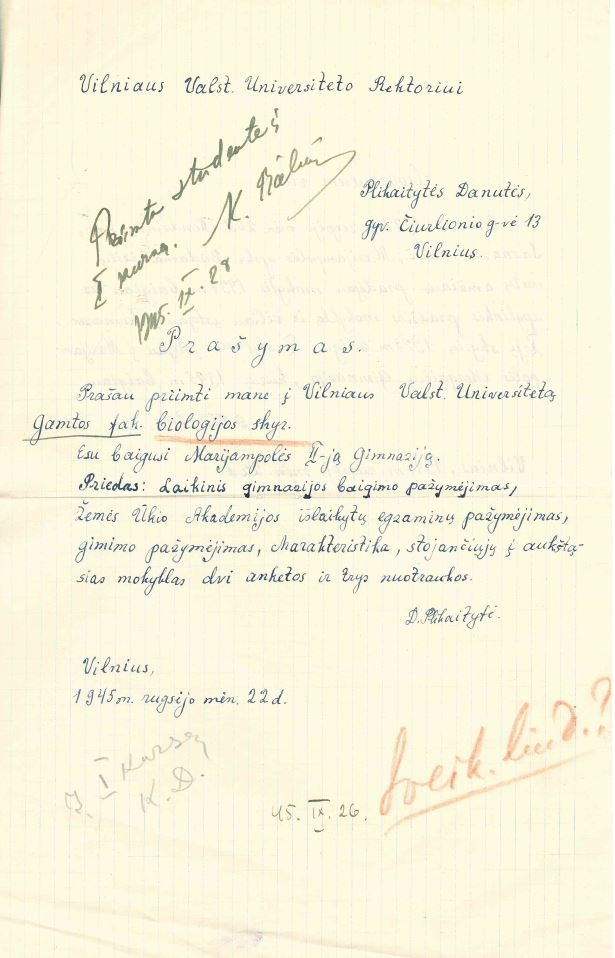 Vilniaus Valst. Universiteto Rektoriui
Priimta studente į
I kursą.
1945. IX. 28
Plikaitytės Danutės,
gyv. Čiurlionio g-vė 13
Vilnius.
Prašymas.
Prašau priimti mane į Vilniaus Valst. Universitetą
Gamtos fak. biologijos skyr.
Esu baigusi Marijampolės II-ją Gimnaziją.
Priedas: Laikinis gimnazijos baigimo pažymėjimas,
Žemės Ūkio Akademijos išlaikytų egzaminų pažymėjimas,
gimimo pažymėjimas, charakteristika, stojančiųjų į aukštą-
sias mokyklas dvi anketos ir trys nuotraukos.
D. Plikaitytė.
Vilnius,
1945 m. rugsėjo mėn. 22 d.
Į I kursą
K. D.
45. IX. 26.
Sveik. liud.?